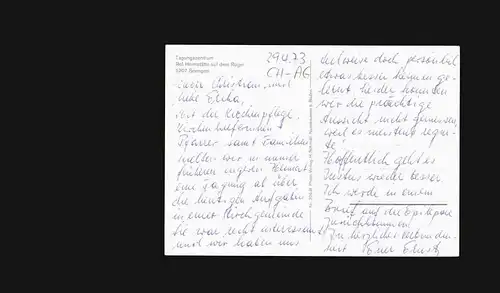 Tagungszentrum
Ref. Heimstätte auf dem Rügel
5707 Seengen
29.4.73
CH-AG
Lieber Christian, und
liebe
mit der Kirchenpflege,
Pfarrer samt Familien
wir in unserer
früheren engeren Heimat
eine Tagung ab über
die heutigen Aufgaben
in einer Kirchgemeinde
Sie war recht interessant
und wir haben uns
teilweise doch persönlich
etwas besser kennen ge-
lernt. Leider konnten
wir die prächtige
Aussicht nicht geniessen,
weil es meistens regne-
te!
Hoffentlich geht es
wieder besser.
Ich werde in einem
Brief auf die
zurückkommen.
In herzlicher Verbunden-
heit